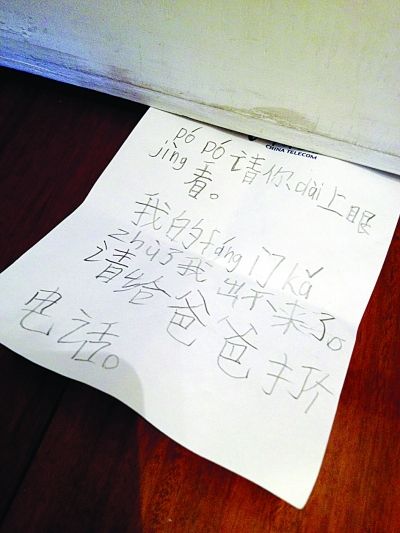 CHINA TELECOM
pó pó 请你 dài 上眼
jìng 看。
我的 fáng 门 kǎ
zhù 了我出不来了。
请给爸爸打
电话。